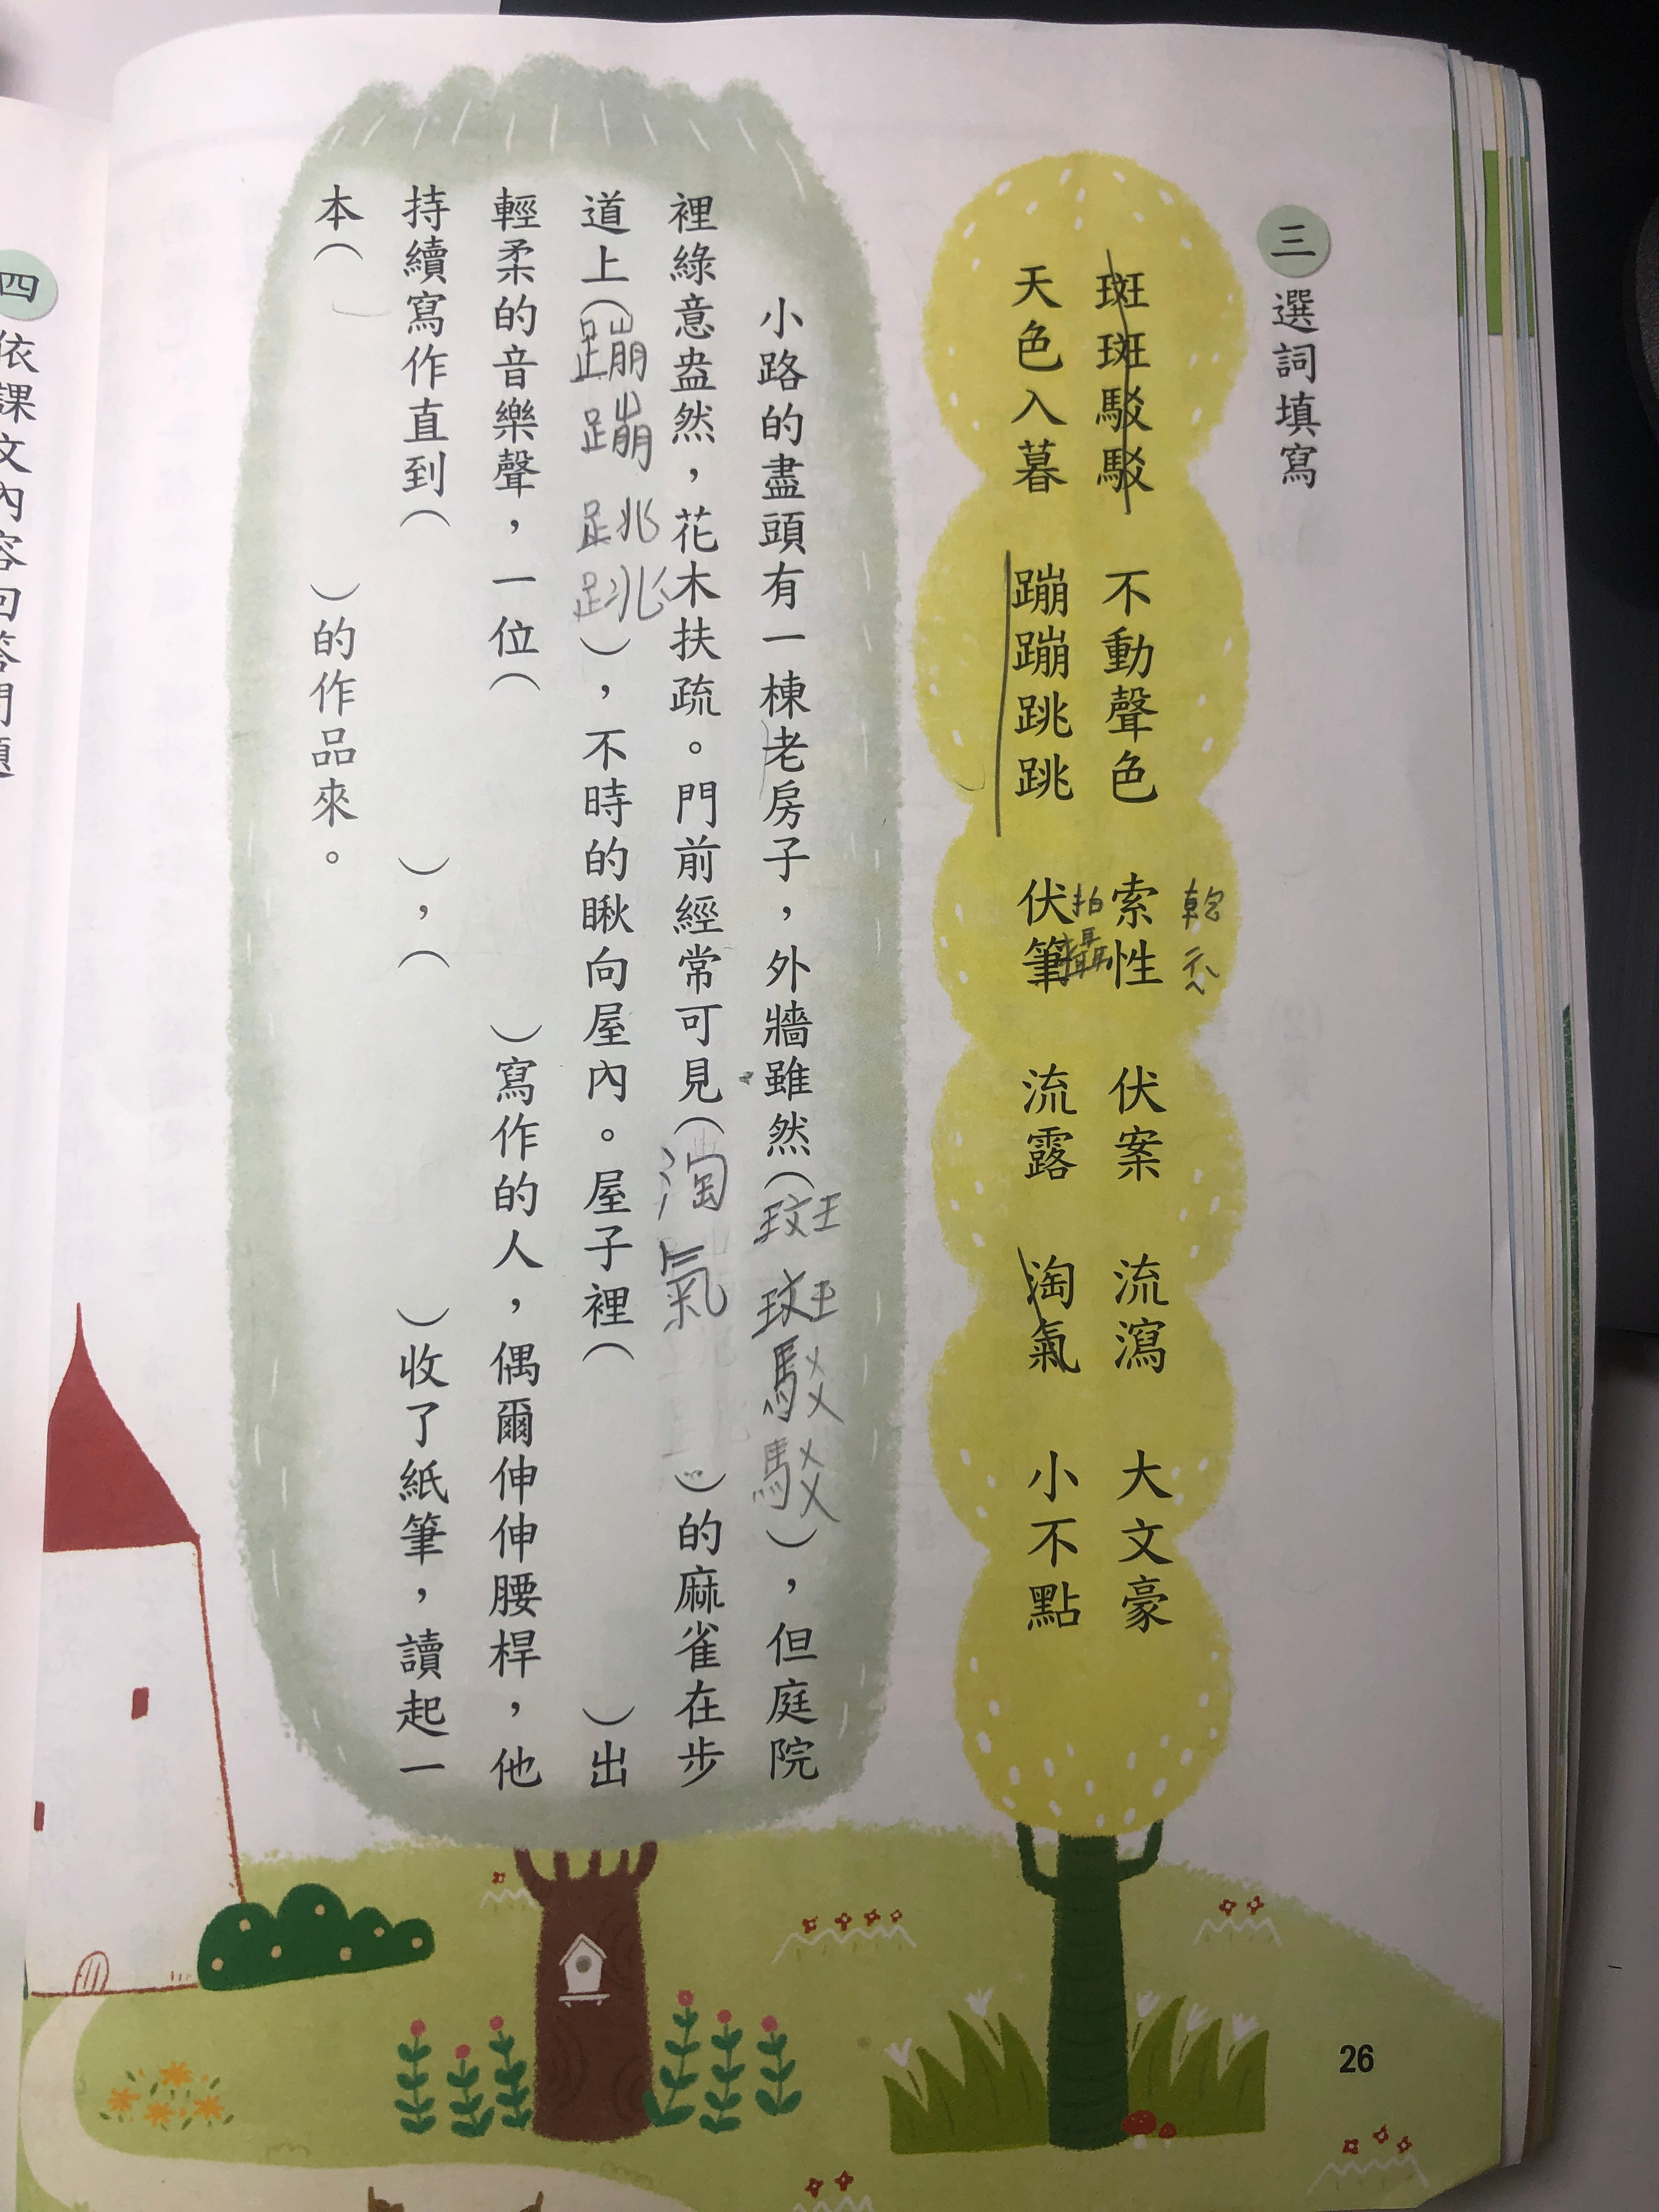 三 選詞填寫
斑斑駁駁 不動聲色 索性 伏案 流瀉 大文豪
天色入暮 蹦蹦跳跳 伏筆 流露 淘氣 小不點
拍攝
小路的盡頭有一棟老房子，外牆雖然（斑斑駁駁），但庭院
裡綠意盎然，花木扶疏。門前經常可見（淘氣）的麻雀在步
道上（蹦蹦跳跳），不時的瞅向屋內。屋子裡（ ）出
輕柔的音樂聲，一位（ ）寫作的人，偶爾伸伸腰桿，他
持續寫作直到（ ），（ ）收了紙筆，讀起一
本（ ）的作品來。
四 依課文內容回答問題
26